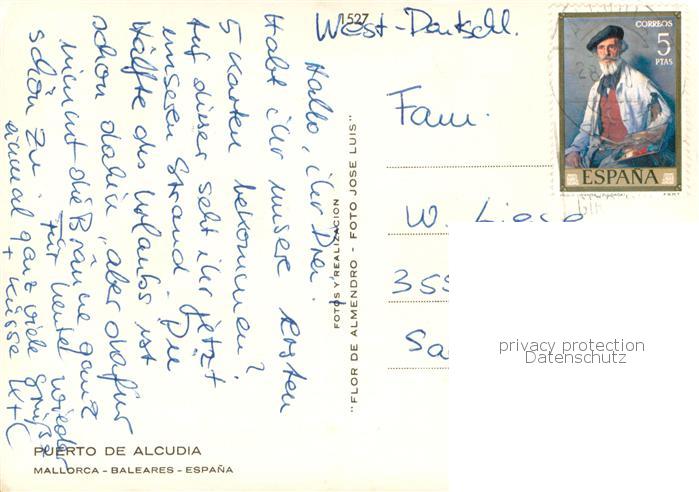 1527
West-Deutschl.
Hallo, ihr Drei!
Habt ihr unsere ersten
5 Karten bekommen?
Auf dieser seht ihr jetzt
unseren Strand. Die
Hälfte des Urlaubs ist
schon dahin, aber dafür
nimmt die Bräune ganz
schön zu. Für heute wieder
einmal ganz viele Grüße
+ Küsse
FOTOS Y REALIZACION
"FLOR DE ALMENDRO - FOTO JOSE LUIS"
CORREOS
5
PTAS
ESPAÑA
Fam.
W.
355
Sa
privacy protection
Datenschutz
PUERTO DE ALCUDIA
MALLORCA - BALEARES - ESPAÑA